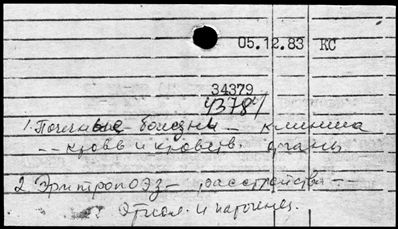 05.12.83 КС
34379
4378
1. Почечные болезни – клиника
-- кровь и кроветв. органы
2. Эритропоэз – расстройства –
Этиол. и патогенез.